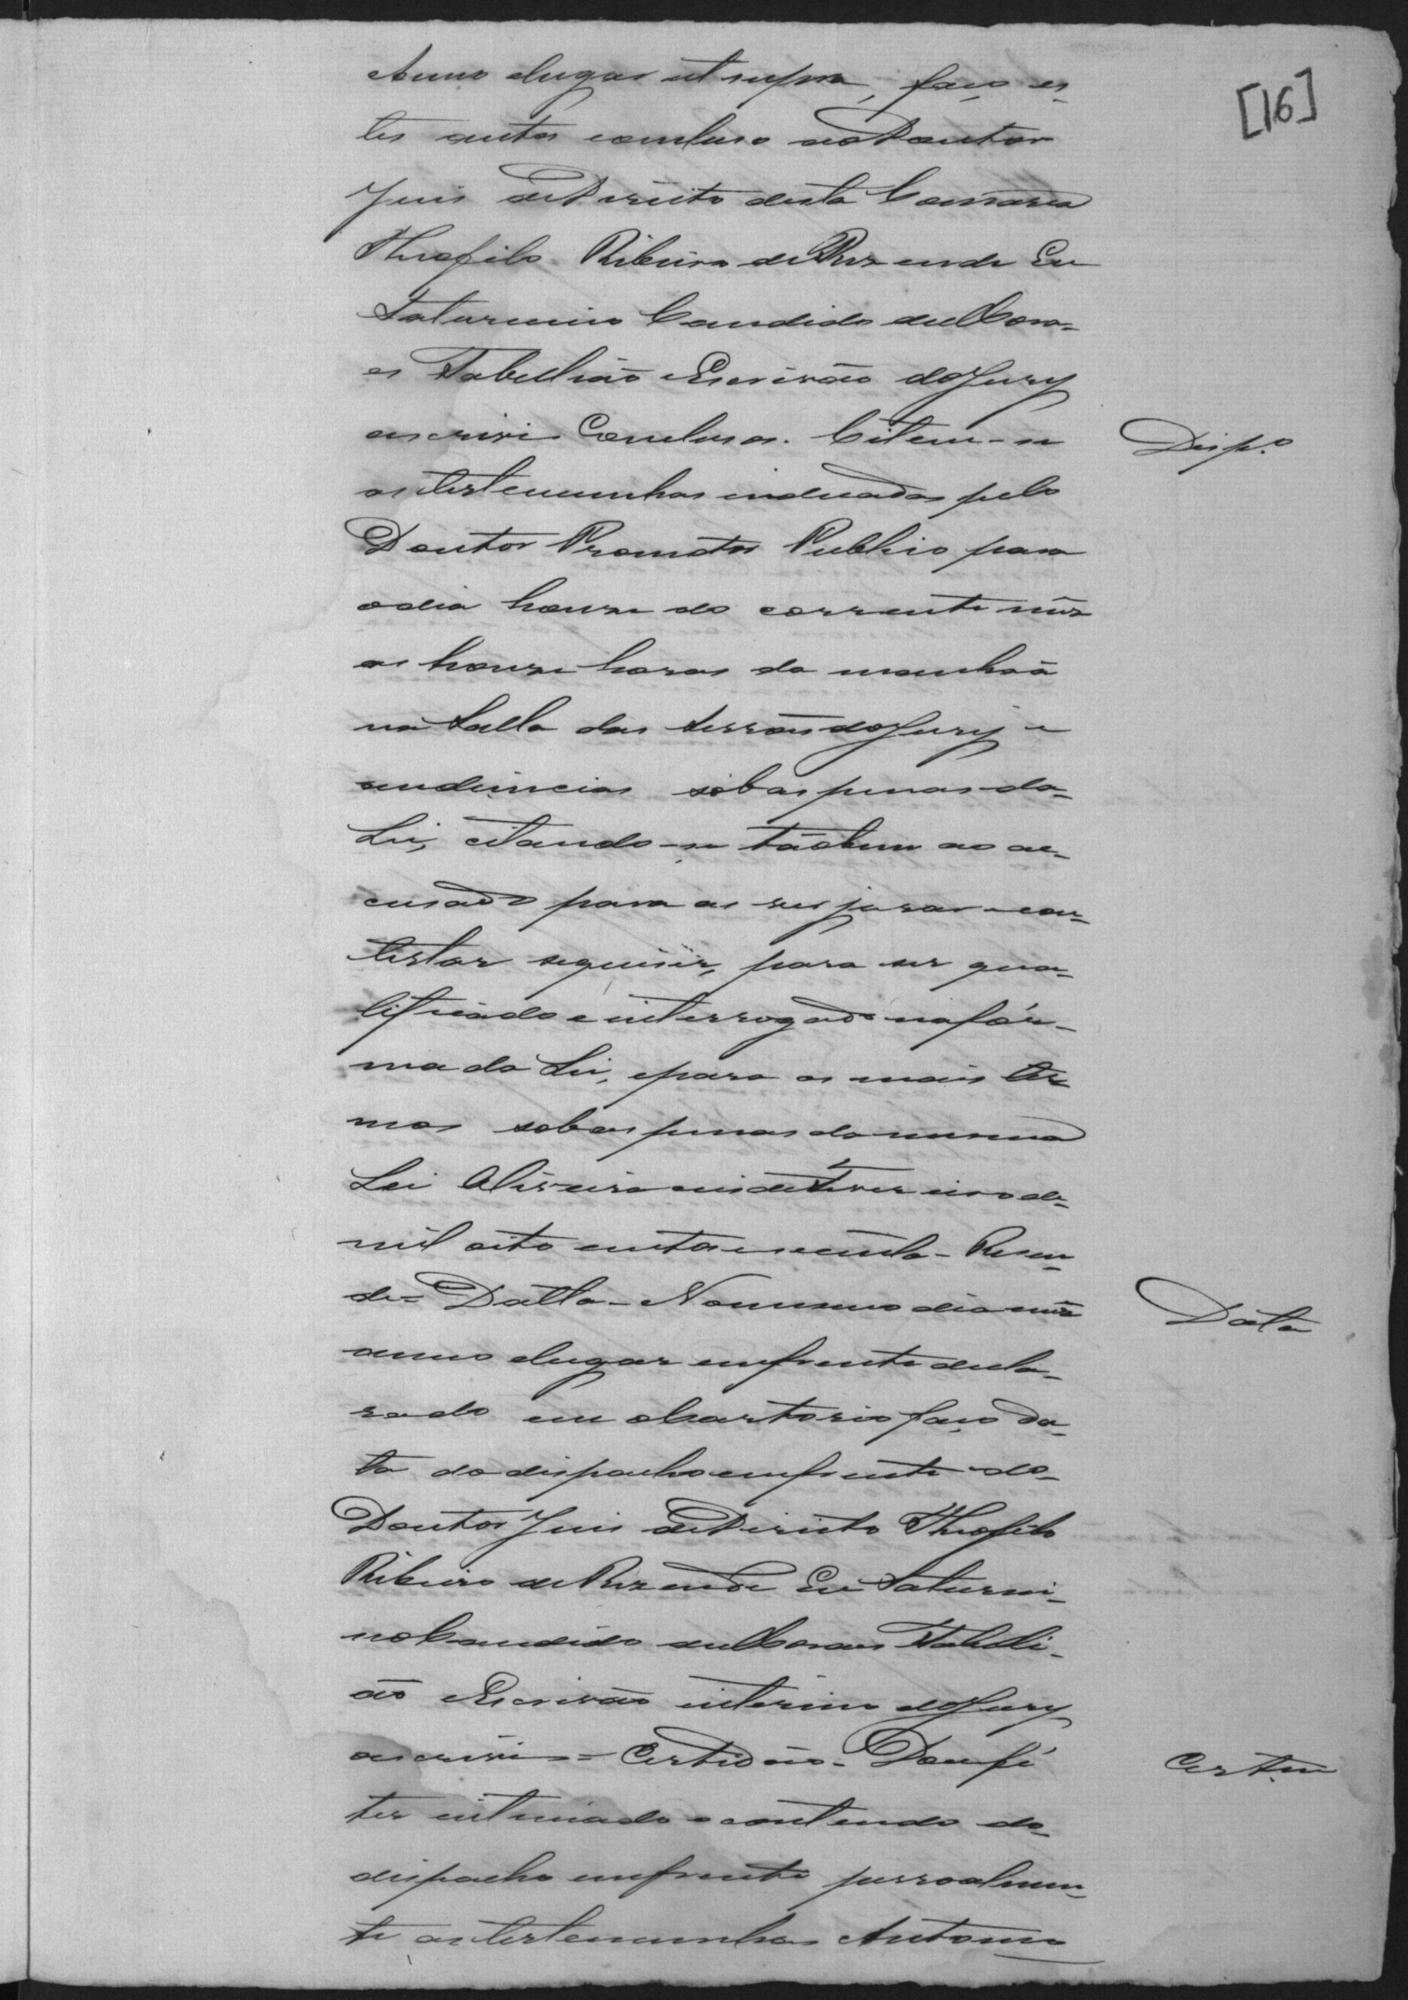 Anno elugar ut supra, faço es-
[16]
tes autos concluso aoDoutor
Juis deDireito desta Comarca
Theofilo Ribeiro deRezende Eu
Saturnino Candido deMora-
es Tabellião eEscrivão doJury
escrivi Conclusos. Citem-se
Desp.o
as testemunhas indicadas pelo
Doutor Promotor Publico para
odia honze do corrente mês
as honze horas da manhãa
na Salla das sessões doJury e
audiencias sobas penas da-
Lei, citando-se tãobem ao ac-
cusado para as ver jurar e con-
testar siquizer, para ser qua-
lificado e interrogado nafór-
ma da Lei, epara os mais ter
mos sobas penas da mesma
Lei Oliveira
mil oito centos enoventa - Resen-
de= Datta - Nomesmo dia mês
Data
anno elugar emfrente decla-
rado em oCartorio faço da-
ta do despacho emfrente do-
Doutor Juis deDireito Theofilo
Ribeiro deRezende Eu Saturni-
noCandido deMoraes Tabelli-
ão eEscrivão interino doJury
escrivi = Certidão - Doufé
Certam
ter intimado o contendo do
despacho emfrente pessoalmen-
te as testemunhas Antonio